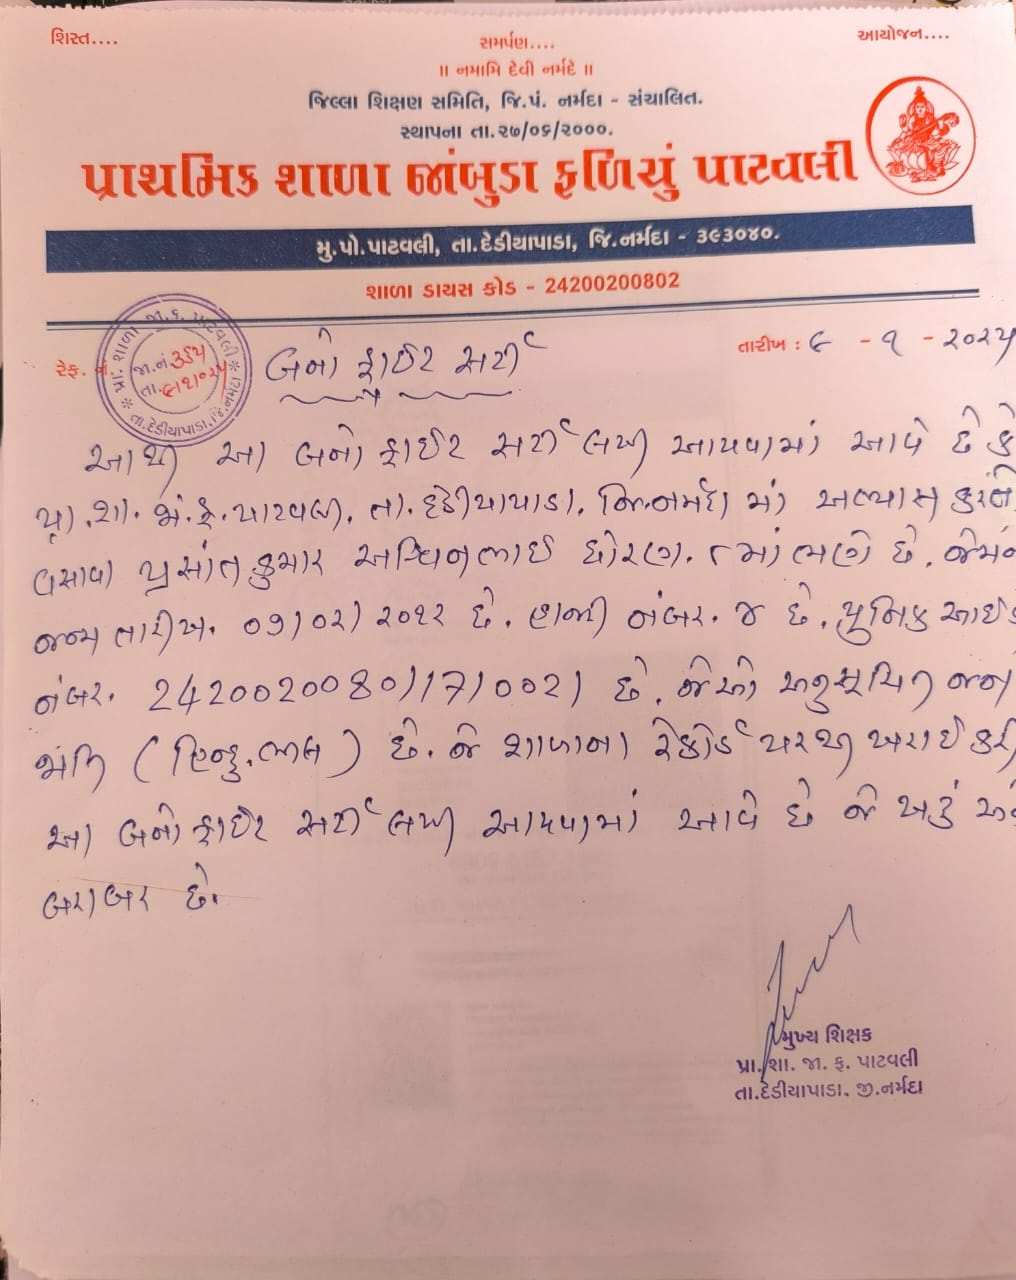 શિસ્ત....
સમર્પણ....
આયોજન....
॥ નમામિ દેવી નર્મદે ॥
જિલ્લા શિક્ષણ સમિતિ, જિ.પં. નર્મદા - સંચાલિત.
સ્થાપના તા.૨૭/૦૬/૨૦૦૦.
પ્રાથમિક શાળા જાંબુડા ફળિયું પાટવલી
મુ.પો.પાટવલી, તા.દેડીયાપાડા, જિ.નર્મદા - ૩૯૩૦૪૦.
શાળા ડાયસ કોડ - 24200200802
રેફ. નં.
પ્રા. શાળા જા. ફ. પાટવલી
જા.નં.૩૬૫
તા.૬/૧/૨૦૨૫
તા.દેડીયાપાડા, જિ.નર્મદા
તારીખ : ૬ - ૧ - ૨૦૨૫
બનોફાઈટ સર્ટી
આથી આ બનોફાઈટ સર્ટી લખી આપવામાં આવે છે કે
પ્રા.શા.જાં.ફ.પાટવલી, તા.દેડીયાપાડા, જિ.નર્મદા માં અભ્યાસ કરતા
વસાવા પ્રસાંતકુમાર અશ્વિનભાઈ ધોરણ. ૮માં ભણે છે. જેમની
જન્મ તારીખ. ૦૧/૦૨/૨૦૧૨ છે. હાજરી નંબર. ૪ છે. યુનિક આઈડી
નંબર. 24200200801171002) છે. જેઓ અનુસૂચિત જન
જાતિ (હિન્દુ.ભીલ) છે. જે શાળાના રેકોર્ડ પરથી ખરાઈ કરી
આ બનોફાઈટ સર્ટી લખી આપવામાં આવે છે જે ખરું અને
બરાબર છે.
મુખ્ય શિક્ષક
પ્રા.શા. જા. ફ. પાટવલી
તા.દેડીયાપાડા. જી.નર્મદા